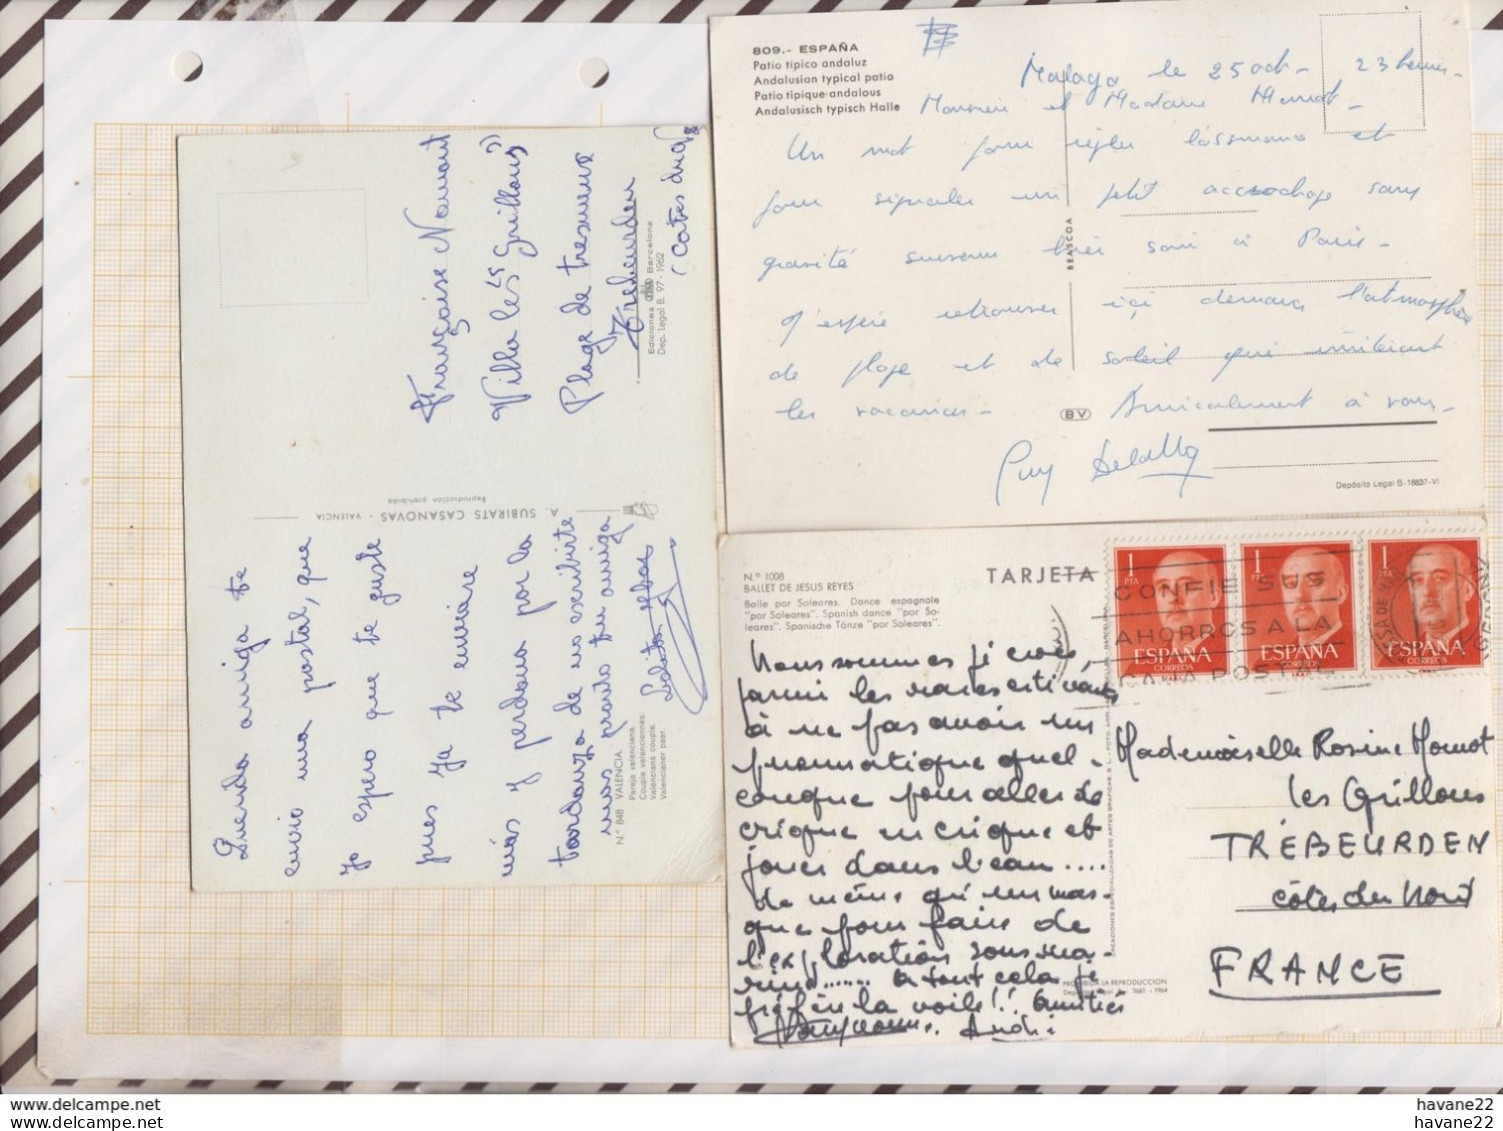 809.- ESPAÑA
Patio típico andaluz
Andalusian typical patio
Patio tipique andalous
Andalusisch typisch Halle
Malaga le 25 oct - 23 heures -
Monsieur et Madame
Un mot pour régler et
pour signaler un petit accrochage sans
gravité survenu hier soir à Paris -
J'espère retrouver içi demain l'atmosphère
de plage et de soleil qui
les vacances - Amicalement à vous -
Guy
BEASCOA
BV
Depósito Legal B-18837-VI
Querida amiga te
envio una postal, que
Yo espero que te guste
pues Ya te enviare
más y perdona por la
tardanza de no escribirte
mas pronto tu amiga
Lolita
Nº 848 VALENCIA.
Pareja valenciana.
Couple valenciennes.
Valencians couple.
Valencianer paar.
A. SUBIRATS CASANOVAS - VALENCIA
Reproducción prohibida
Françoise
Villa les "les Grillons"
Plage de
Trebeurden
(Cotes du
Ediciones Barcelona
Dep. Legal B. 97 - 1962
N.º 1008
BALLET DE JESUS REYES
Baile por Soleares. Dance espagnole
"por Soleares". Spanish dance "por So-
leares". Spanische Tänze "por Soleares".
TARJETA
1 PTA
ESPAÑA
CORREOS
1 PTA
ESPAÑA
CORREOS
1 PTA
ESPAÑA
CORREOS
CONFIE SUS
AHORROS A LA
CAJA POSTAL
Nous sommes je crois,
parmi les rares estivants
à ne pas avoir un
pneumatique quel-
conque pour aller de
crique en crique et
jouer dans l'eau ....
de même qu'un mas-
que pour faire de
l'exploration sous ma-
rine ...... a tout cela je
préfère la voile!! amitiés
André
Mademoiselle Rosine Mornot
les Grillons
TRÉBEURDEN
Côtes du Nord
FRANCE
PROHIBIDA LA REPRODUCCION
havane22
havane22
havane22
havane22